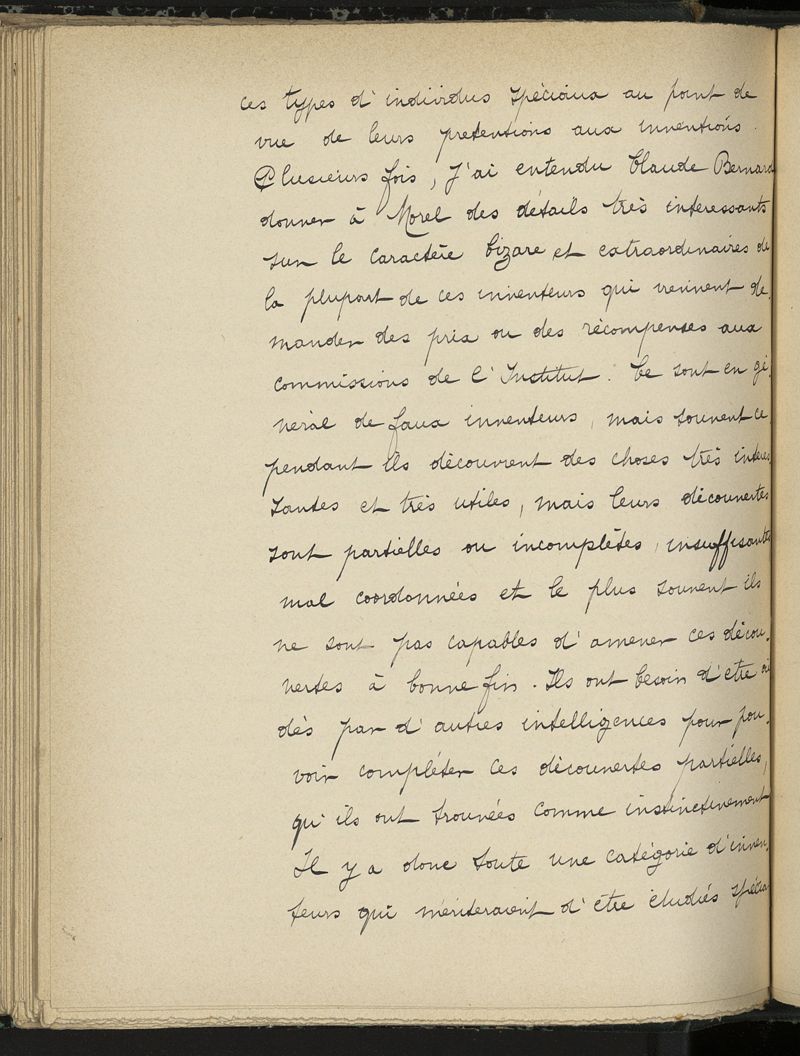 ces types d'individus spéciaux au point de
vue de leurs pretentions aux inventions.
Plusieurs fois, j'ai entendu Claude Bernard
donner à Morel des détails très interessants
sur le caractère bizare et extraordinaires de
la plupart de ces inventeurs qui viennent de
mander des prix ou des récompenses aux
commissions de l'Institut. Ce sont en gé
neral de faux inventeurs, mais souvent ce
pendant ils découvrent des choses très intéres
santes et très utiles, mais leurs découvertes
sont partielles ou incomplètes, insuffisantes
mal coordonnées et le plus souvent ils
ne sont pas capables d'amener ces décou-
vertes à bonne fin. Ils ont besoin d'etre ai
dés par d'autres intelligences pour pou-
voir compléter ces découvertes partielles,
qu'ils ont trouvées comme instinctivement
Il y a donc toute une catégorie d'inven-
teurs qui mériteraient d'etre étudiés spécia